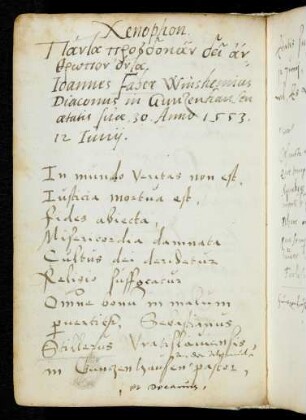 Xenophon.
Πάντα προσδοκᾶν δεῖ ἄν-
θρωπον ὄντα.
Ioannes Faber
Diaconus in
ætatis suæ 30. Anno 1553.
12 Iunij.
In mundo veritas non est.
Iusticia mortua est.
Fides abiecta,
Misericordia damnata
Cultus dei deridetur
Religio suffocatur
Omne bonu in malum
puertitr. Sebastianus
Stillerus Vratislamensis,
in Guntzenhausen pastor,